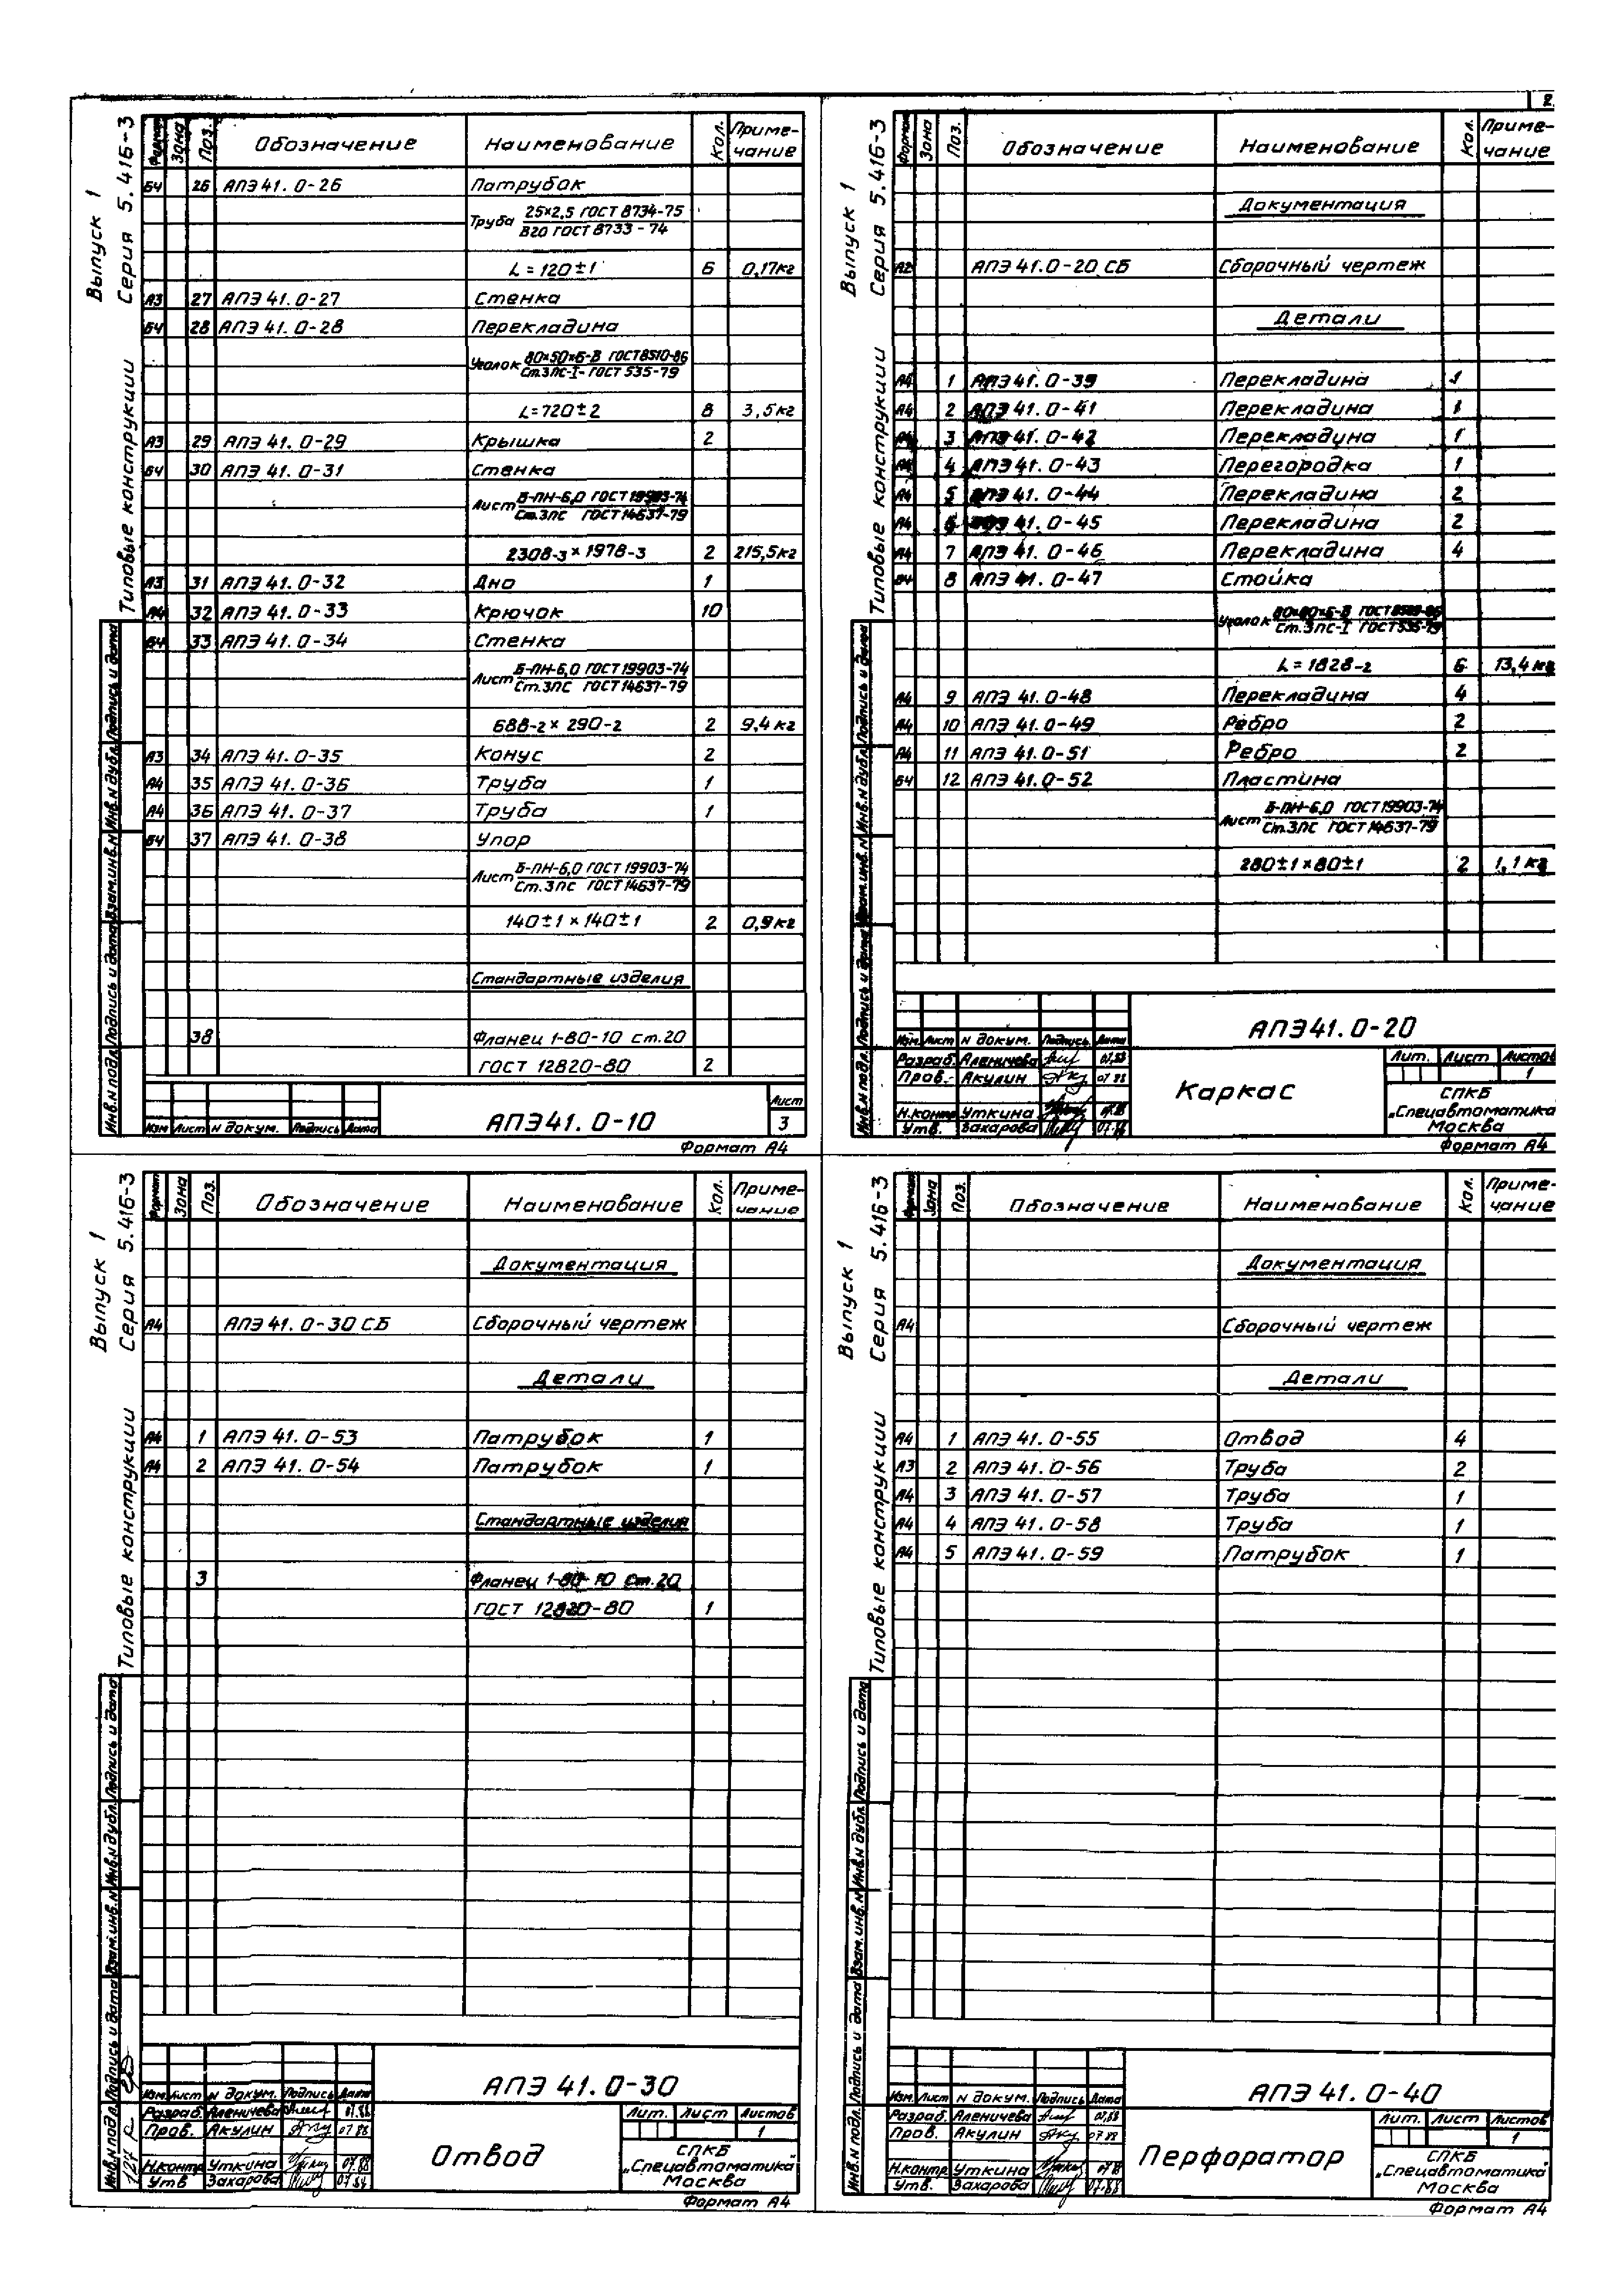 2
Выпуск 1
Типовые конструкции Серия 5.416-3
Формат Зона Поз. Обозначение Наименование Кол. Приме-
чание
БЧ 26 АПЭ 41.0-26 Патрубок
Труба 25×2,5 ГОСТ 8734-75
В20 ГОСТ 8733-74
L = 120±1 6 0,17кг
А3 27 АПЭ 41.0-27 Стенка
БЧ 28 АПЭ 41.0-28 Перекладина
Уголок 80×50×6-В ГОСТ 8510-86
Ст.3ПС-I- ГОСТ 535-79
L=720±2 8 3,5кг
А3 29 АПЭ 41.0-29 Крышка 2
БЧ 30 АПЭ 41.0-31 Стенка
Лист Б-ПН-6,0 ГОСТ 19903-74
Ст.3ПС ГОСТ 14637-79
2308-3 × 1978-3 2 215,5кг
А3 31 АПЭ 41.0-32 Дно 1
А4 32 АПЭ 41.0-33 Крючок 10
БЧ 33 АПЭ 41.0-34 Стенка
Лист Б-ПН-6,0 ГОСТ 19903-74
Ст.3ПС ГОСТ 14637-79
688-2 × 290-2 2 9,4кг
А3 34 АПЭ 41.0-35 Конус 2
А4 35 АПЭ 41.0-36 Труба 1
А4 36 АПЭ 41.0-37 Труба 1
БЧ 37 АПЭ 41.0-38 Упор
Лист Б-ПН-6,0 ГОСТ 19903-74
Ст.3ПС ГОСТ 14637-79
140±1 × 140±1 2 0,9кг
Стандартные изделия
38 Фланец 1-80-10 ст.20
ГОСТ 12820-80 2
Инв.N подл. Подпись и дата Взам.инв.N Инв.N дубл. Подпись и дата
Изм Лист N докум. Подпись Дата
АПЭ41.0-10
Лист
3
Формат А4
Выпуск 1
Типовые конструкции Серия 5.416-3
Формат Зона Поз. Обозначение Наименование Кол. Приме-
чание
Документация
А2 АПЭ 41.0-20 СБ Сборочный чертеж
Детали
А4 1 АПЭ 41.0-39 Перекладина 1
А4 2 АПЭ 41.0-41 Перекладина 1
А4 3 АПЭ 41.0-42 Перекладина 1
А4 4 АПЭ 41.0-43 Перегородка 1
А4 5 АПЭ 41.0-44 Перекладина 2
А4 6 АПЭ 41.0-45 Перекладина 2
А4 7 АПЭ 41.0-46 Перекладина 4
БЧ 8 АПЭ 41.0-47 Стойка
Уголок 80×80×6-В ГОСТ 8509-86
Ст.3ПС-I ГОСТ 535-79
L = 1828-2 6 13,4кг
А4 9 АПЭ 41.0-48 Перекладина 4
А4 10 АПЭ 41.0-49 Ребро 2
А4 11 АПЭ 41.0-51 Ребро 2
БЧ 12 АПЭ 41.0-52 Пластина
Лист Б-ПН-6,0 ГОСТ 19903-74
Ст.3ПС ГОСТ 14637-79
280±1×80±1 2 1,1кг
Инв.N подл. Подпись и дата Взам.инв.N Инв.N дубл. Подпись и дата
АПЭ41.0-20
Изм. Лист N докум. Подпись Дата
Разраб. Аленичева 07.88
Пров. Акулин 07 88
Н.контр. Уткина 07.88
Утв. Захарова 07.88
Каркас
Лит. Лист Листов
1
СПКБ
„Спецавтоматика
Москва
Формат А4
Выпуск 1
Типовые конструкции Серия 5.416-3
Формат Зона Поз. Обозначение Наименование Кол. Приме-
чание
Документация
А4 АПЭ 41.0-30 СБ Сборочный чертеж
Детали
А4 1 АПЭ 41.0-53 Патрубок 1
А4 2 АПЭ 41.0-54 Патрубок 1
Стандартные изделия
3 Фланец 1-80-10 ст.20
ГОСТ 12820-80 1
Инв.N подл. Подпись и дата Взам.инв.N Инв.N дубл. Подпись и дата
АПЭ 41.0-30
Изм. Лист N докум. Подпись Дата
Разраб. Аленичева 07.88
Пров. Акулин 07 88
Н.контр Уткина 07.88
Утв Захарова
Отвод
Лит. Лист Листов
1
СПКБ
„Спецавтоматика"
Москва
Формат А4
Выпуск 1
Типовые конструкции Серия 5.416-3
Формат Зона Поз. Обозначение Наименование Кол. Приме-
чание
Документация
А4 Сборочный чертеж
Детали
А4 1 АПЭ 41.0-55 Отвод 4
А3 2 АПЭ 41.0-56 Труба 2
А4 3 АПЭ 41.0-57 Труба 1
А4 4 АПЭ 41.0-58 Труба 1
А4 5 АПЭ 41.0-59 Патрубок 1
Инв.N подл. Подпись и дата Взам.инв.N Инв.N дубл. Подпись и дата
АПЭ 41.0-40
Изм. Лист N докум. Подпись Дата
Разраб. Аленичева 07.88
Пров. Акулин 07 88
Н.контр. Уткина 07 88
Утв. Захарова 07.88
Перфоратор
Лит. Лист Листов
1
СПКБ
„Спецавтоматика"
Москва
Формат А4